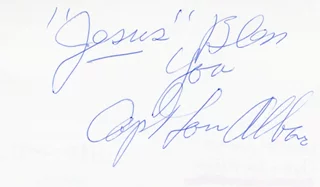 "Jesus" Bless
You
Capt Lou Albano